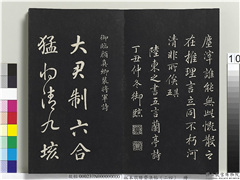 塵滓誰能無此慨散之
在推理言立同不朽河
清非所俟
陸柬之書五言蘭亭詩
丁丑仲冬御臨
御臨顏真卿裴將軍詩
大君制六合
猛將清九垓
10